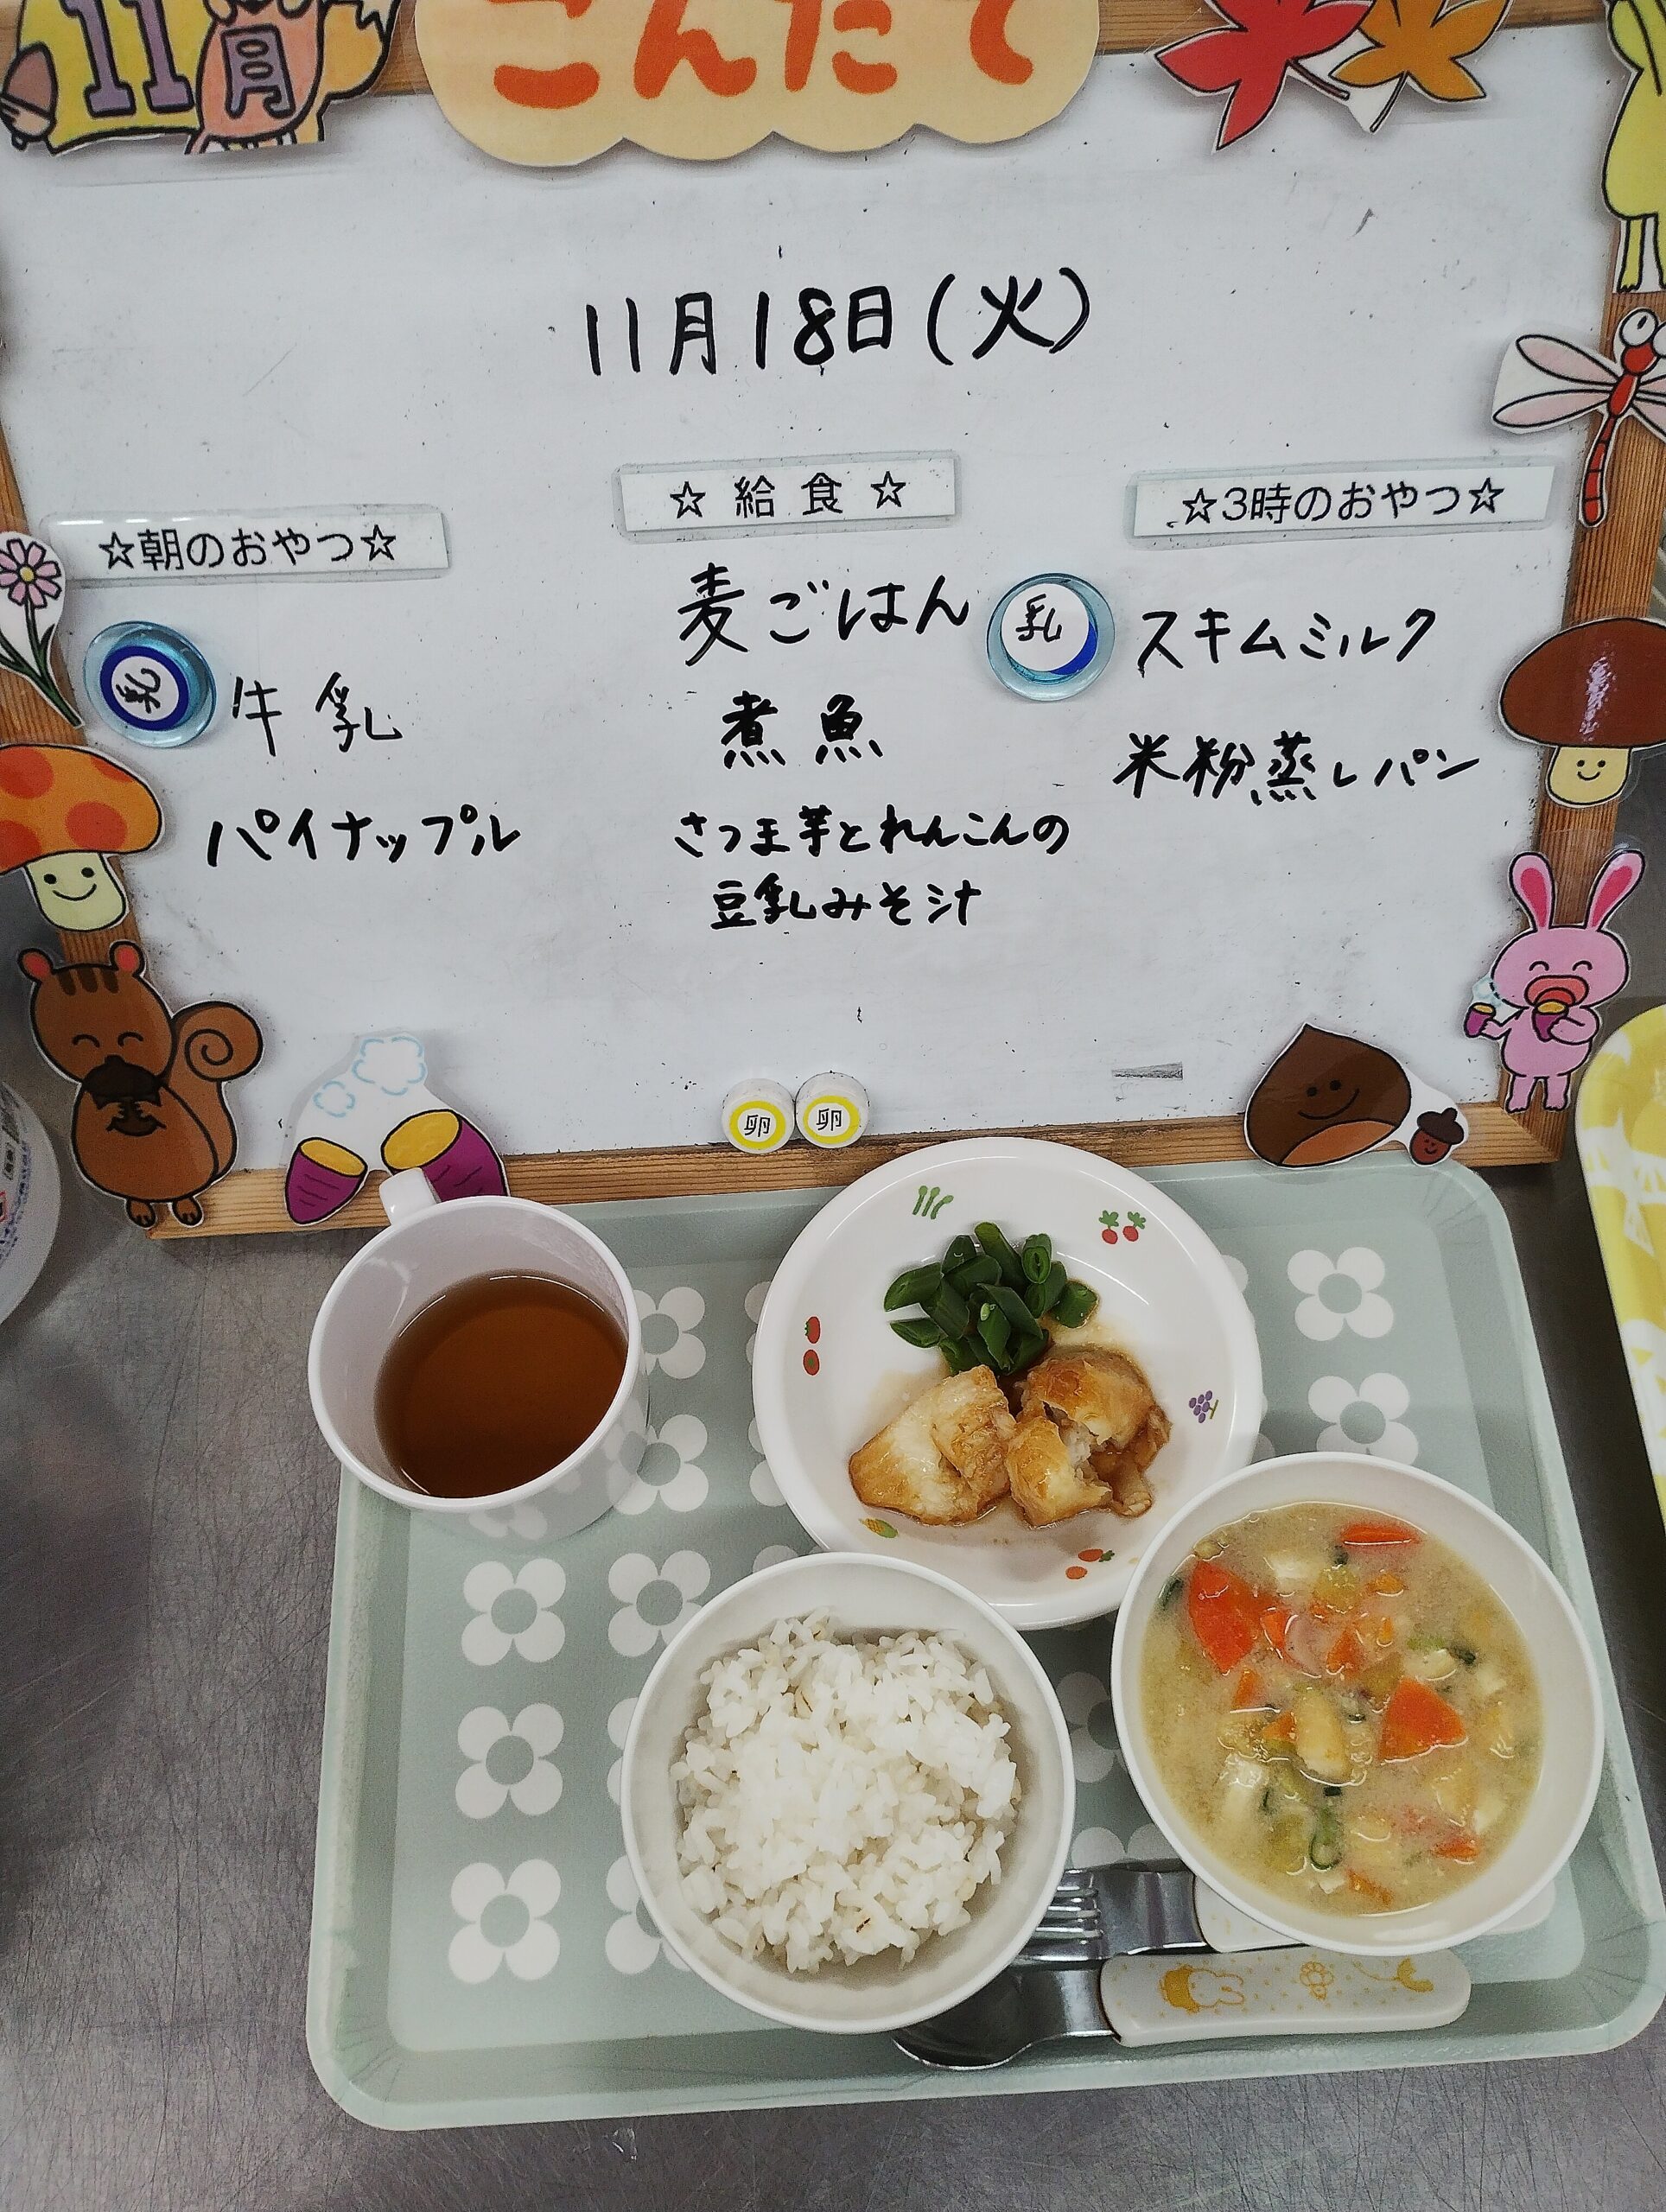 11月
こんだて
11月18日(火)
☆朝のおやつ☆
乳 牛乳
パイナップル
☆給食☆
麦ごはん
煮魚
さつま芋とれんこんの
豆乳みそ汁
☆3時のおやつ☆
乳 スキムミルク
米粉蒸しパン
卵 卵